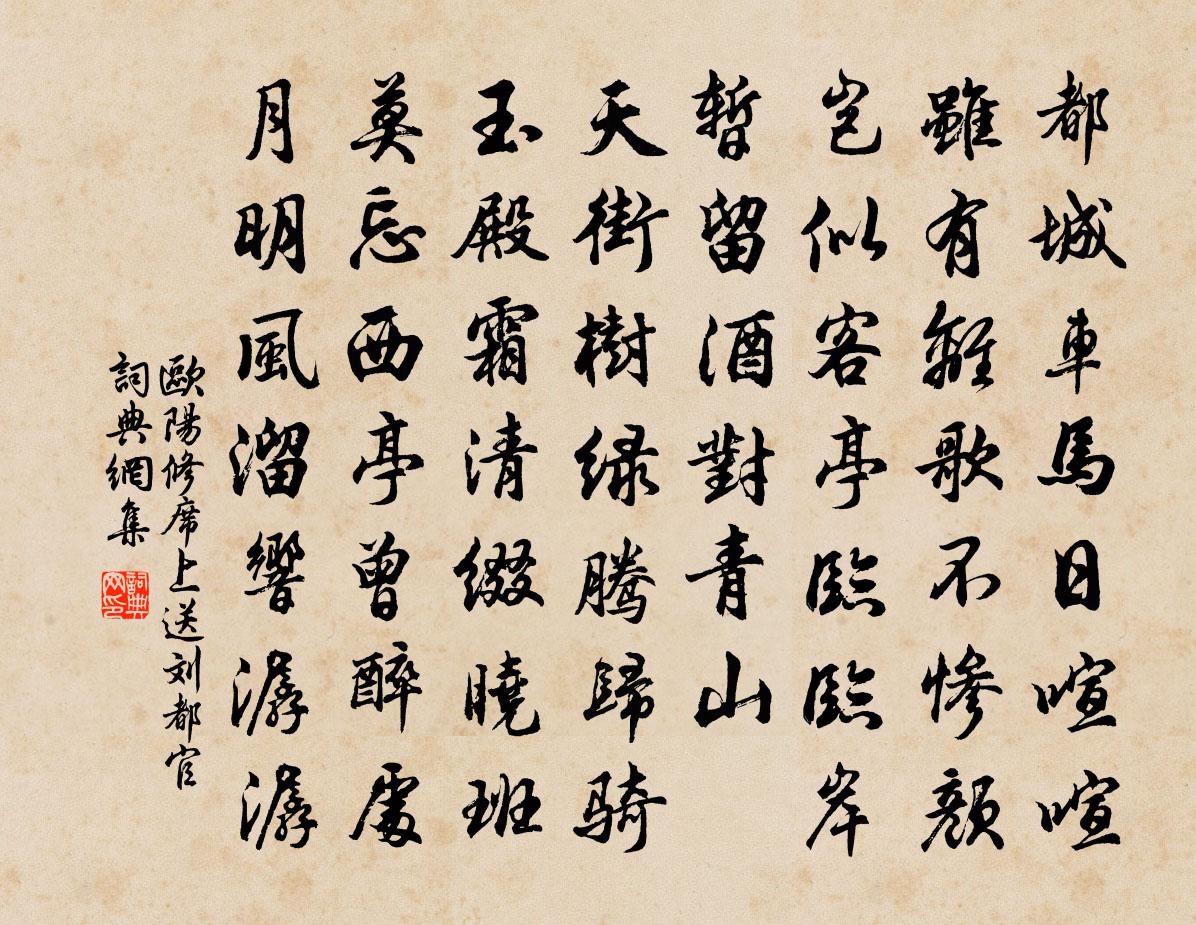 都城車馬日喧喧
雖有離歌不慘顏
豈似客亭臨臨岸
暫留酒對青山
天街樹緑騰歸騎
玉殿霜清綴曉班
莫忘西亭曾醉處
月明風溜響潺潺
歐陽修席上送刘都官
詞典網集
詞典
网印